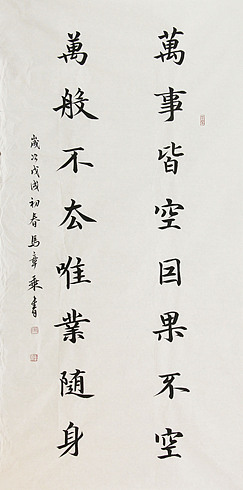 萬事皆空因果不空
萬般不厺唯業隨身
歲次戊戌初春馬章乘書